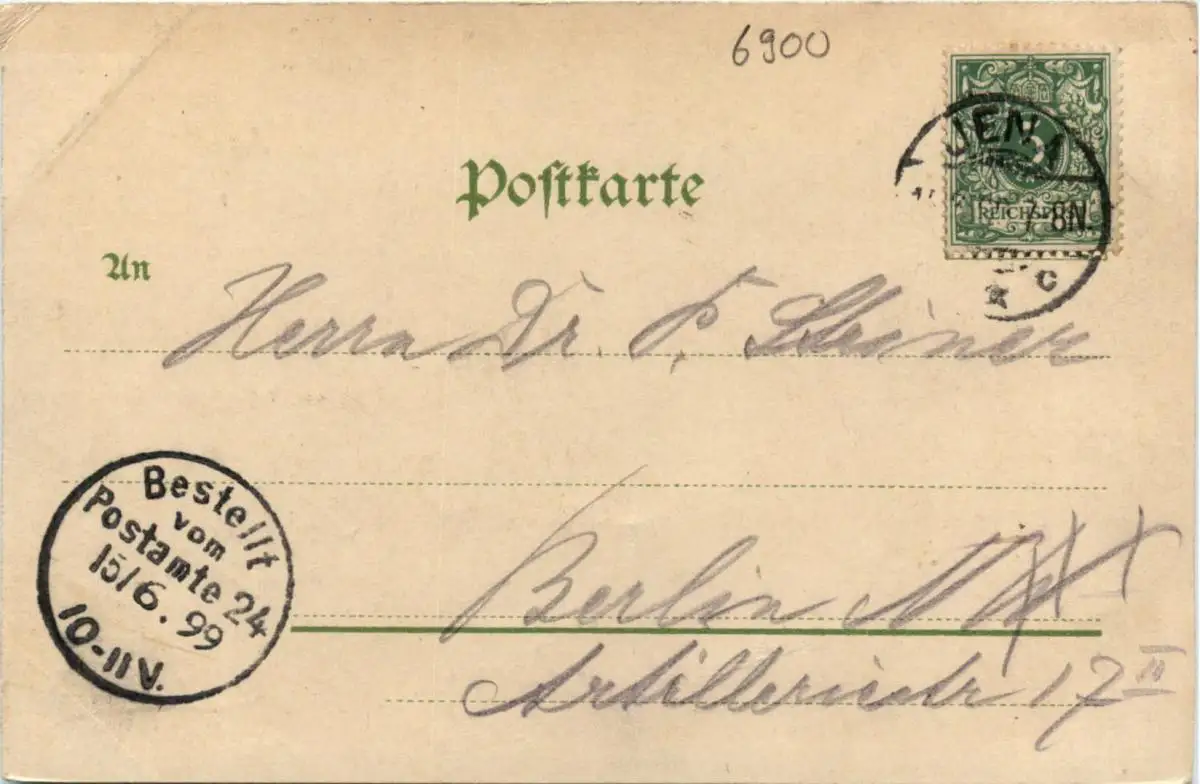 6900
JENA
REICHSP
7-8N.
* c
Postkarte
An
Herrn Dr. P. Steiner
Bestellt
vom
Postamte 24
15/6.99
10-11V.
Berlin N
Artilleriestr 17 II